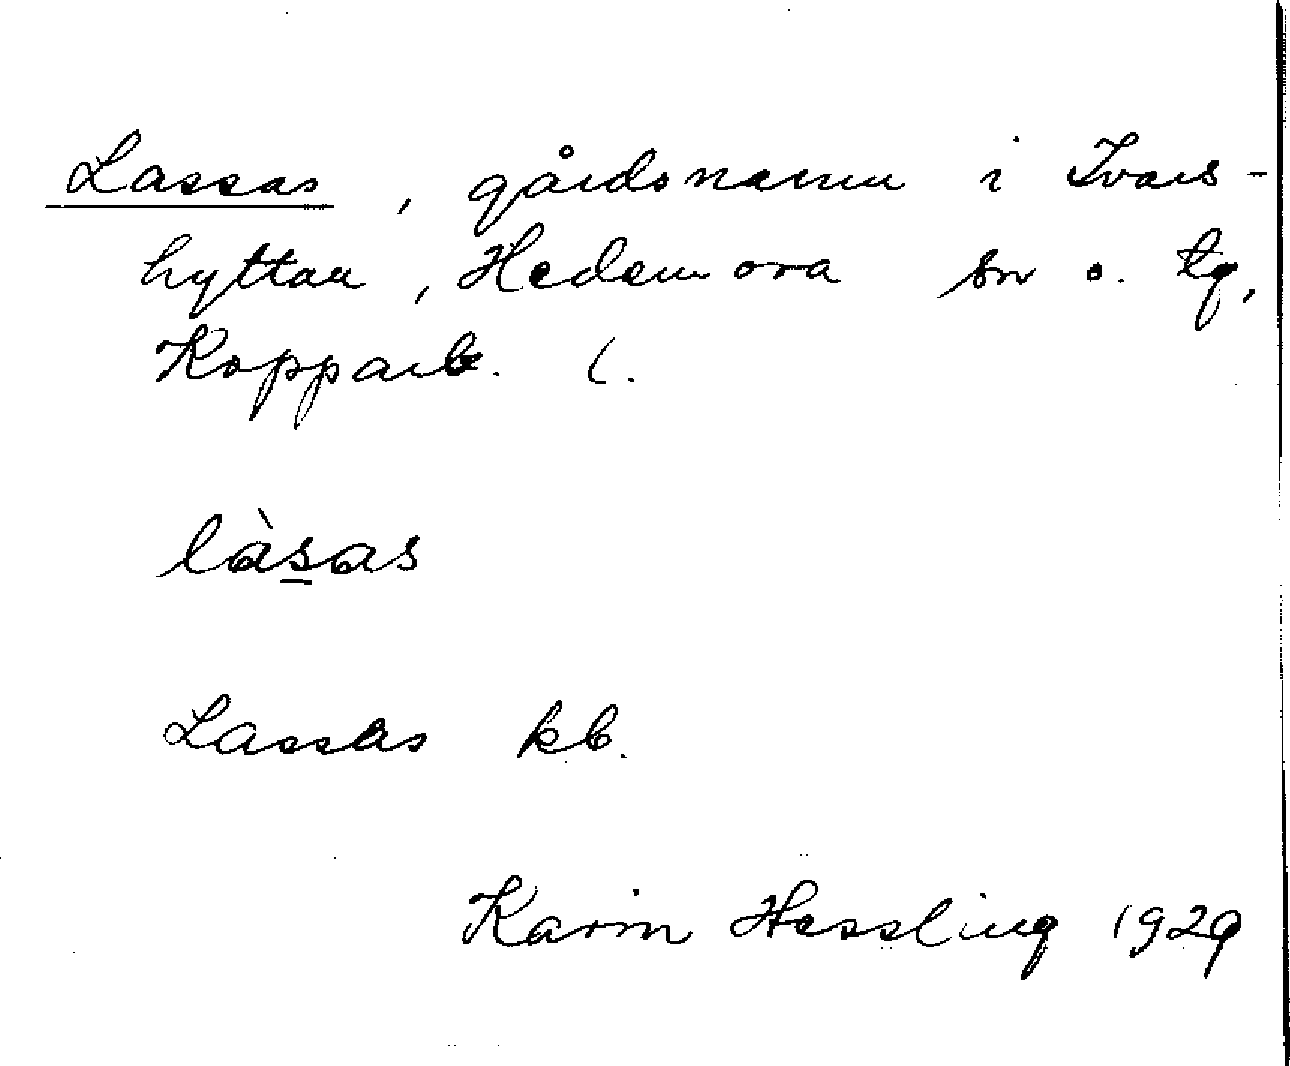 Lassas, gårdsnamn i Ivars-
hyttan, Hedemora sn o. tg,
Kopparb. l.
làs̲as
Lassas kb.
Karin Hessling 1929